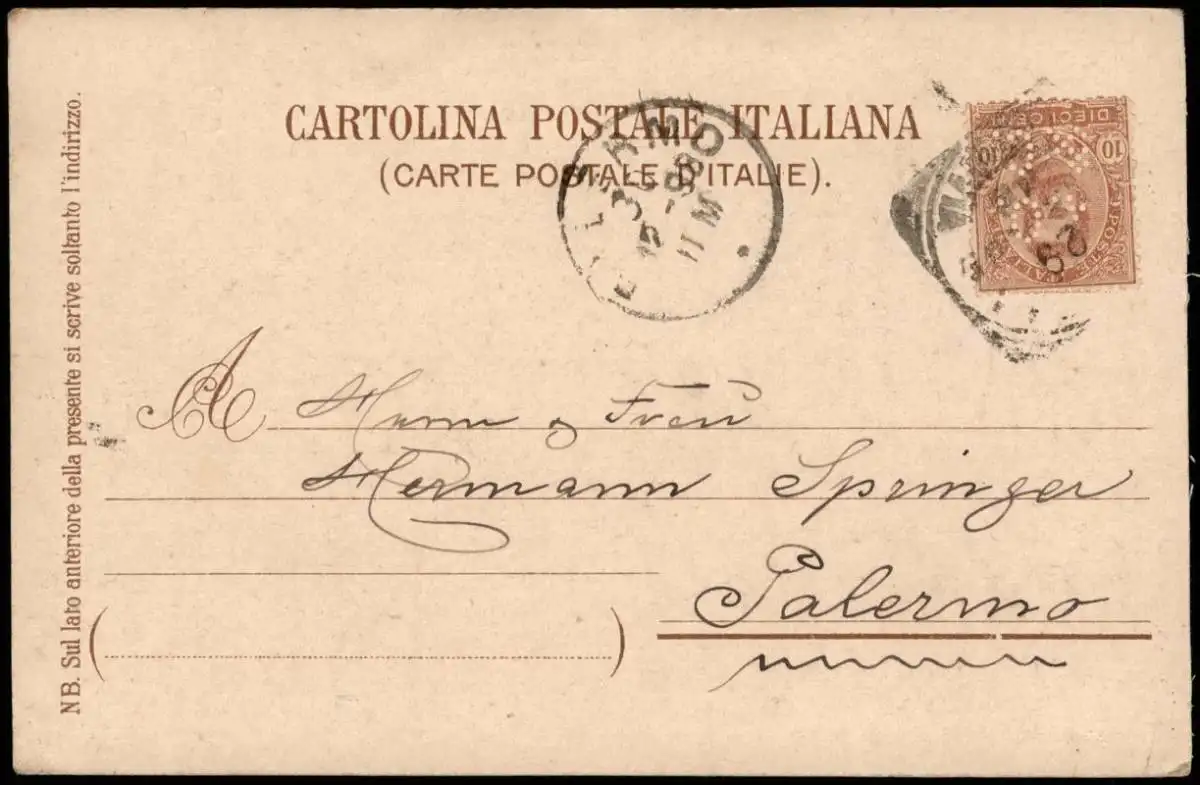 CARTOLINA POSTALE ITALIANA
(CARTE POSTALE D'ITALIE).
PALERMO
11 M
DIECI CENT
10
POSTE ITALIANE
A Herrn & Frau
Hermann Springer
Palermo
NB. Sul lato anteriore della presente si scrive soltanto l'indirizzo.